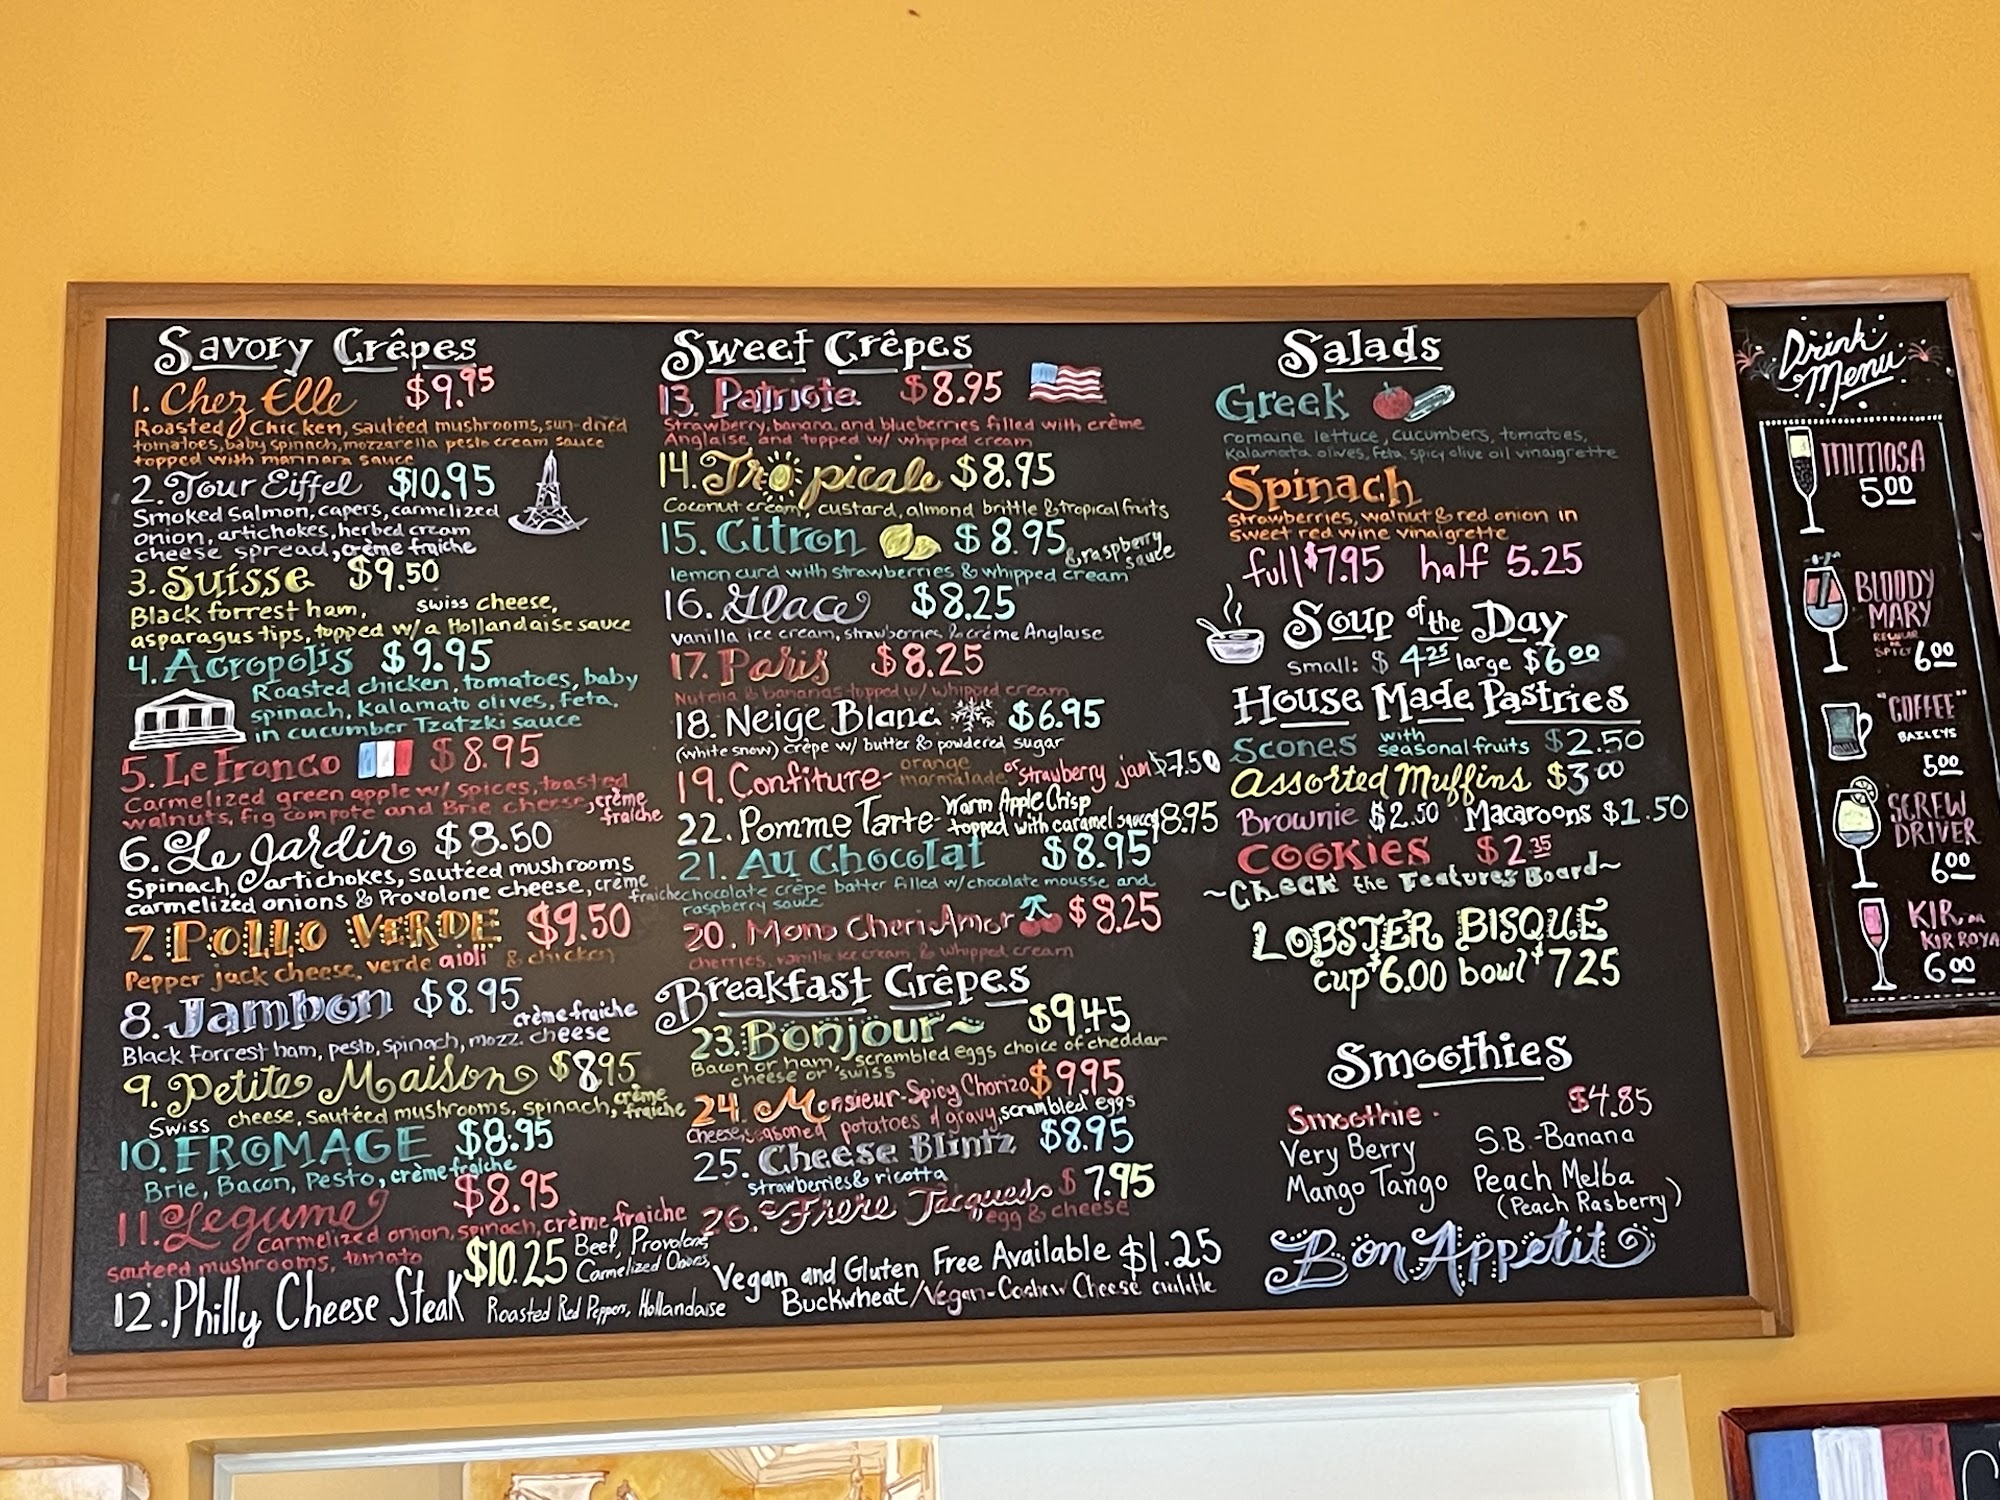 Savory Crêpes
1. Chez Elle $9.95
Roasted Chicken, sautéed mushrooms, sun-dried
tomatoes, baby spinach, mozzarella pesto cream sauce
topped with marinara sauce
2. Tour Eiffel $10.95
Smoked Salmon, capers, carmelized
onion, artichokes, herbed cream
cheese spread, crème fraiche
3. Suisse $9.50
Black forrest ham, swiss cheese,
asparagus tips, topped w/ a Hollandaise sauce
4. Acropolis $9.95
Roasted chicken, tomatoes, baby
spinach, Kalamato olives, feta,
in cucumber Tzatzki sauce
5. Le Franco $8.95
Carmelized green apple w/ spices, toasted
walnuts, fig compote and Brie cheese, crème
fraiche
6. Le Jardin $8.50
Spinach, artichokes, sautéed mushrooms
carmelized onions & Provolone cheese, crème fraiche
7. Pollo Verde $9.50
Pepper jack cheese, verde aioli & chicken
8. Jambon $8.95
crème fraiche
Black Forrest ham, pesto, spinach, mozz. cheese
9. Petite Maison $8.95
Swiss cheese, sautéed mushrooms, spinach, crème
fraiche
10. FROMAGE $8.95
Brie, Bacon, Pesto, crème fraiche
11. Legume $8.95
carmelized onion, spinach, crème fraiche
sauteed mushrooms, tomato
12. Philly Cheese Steak $10.25 Beef, Provolone,
Carmelized Onions,
Roasted Red Peppers, Hollandaise
Sweet Crêpes
13. Patriote $8.95
Strawberry, banana, and blueberries filled with crème
Anglaise and topped w/ whipped cream
14. Tropicale $8.95
Coconut cream, custard, almond brittle & tropical fruits
15. Citron $8.95
& raspberry
sauce
lemon curd with strawberries & whipped cream
16. Glace $8.25
vanilla ice cream, strawberries & créme Anglaise
17. Paris $8.25
Nutella & bananas topped w/ whipped cream
18. Neige Blanc $6.95
(white snow) crêpe w/ butter & powdered sugar
19. Confiture- orange
marmalade or strawberry jam $7.50
22. Pomme Tarte- Warm Apple Crisp
topped with caramel sauce $8.95
21. Au Chocolat $8.95
chocolate crêpe batter filled w/ chocolate mousse and
raspberry sauce
20. Mono Cheri Amor $8.25
cherries, vanilla ice cream, & whipped cream
Breakfast Crêpes
23. Bonjour~ $9.45
Bacon or ham, scrambled eggs choice of cheddar
cheese or swiss
24. Monsieur-Spicy Chorizo $9.95
Cheese, seasoned potatoes & gravy, scrambled eggs
25. Cheese Blintz $8.95
strawberries & ricotta
26. Frere Jacqueds $7.95
egg & cheese
Vegan and Gluten Free Available $1.25
Buckwheat/Vegan-Cashew Cheese
Salads
Greek
romaine lettuce, cucumbers, tomatoes,
Kalamata olives, feta, spicy olive oil vinaigrette
Spinach
strawberries, walnut & red onion in
sweet red wine vinaigrette
full $7.95 half 5.25
Soup of the Day
small: $4.25 large $6.00
House Made Pastries
Scones with
seasonal fruits $2.50
Assorted Muffins $3.00
Brownie $2.50 Macaroons $1.50
COOKIES $2.35
~Check the Features Board~
LOBSTER BISQUE
cup $6.00 bowl $7.25
Smoothies
Smoothie. $4.85
Very Berry S.B.-Banana
Mango Tango Peach Melba
(Peach Rasberry)
Bon Appetit
Drink
Menu
MIMOSA
5.00
BLOODY
MARY
REGULAR
OR
SPICY 6.00
"COFFEE"
BAILEYS
5.00
SCREW
DRIVER
6.00
KIR OR
KIR ROYA
6.00